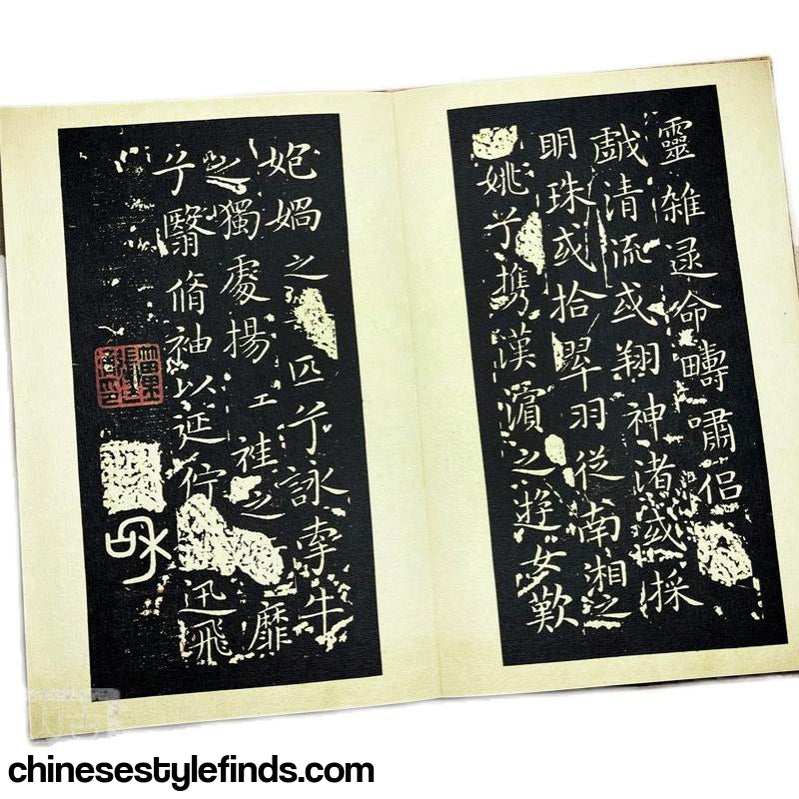 靈雜遝命疇嘯侶
戲清流或翔神渚或採
明珠或拾翠羽從南湘之
姚兮攜漢濱之遊女歎
匏媧之匹兮詠牽牛
之獨處揚袿之靡
兮翳脩袖以延佇迅飛
chinesestylefinds.com